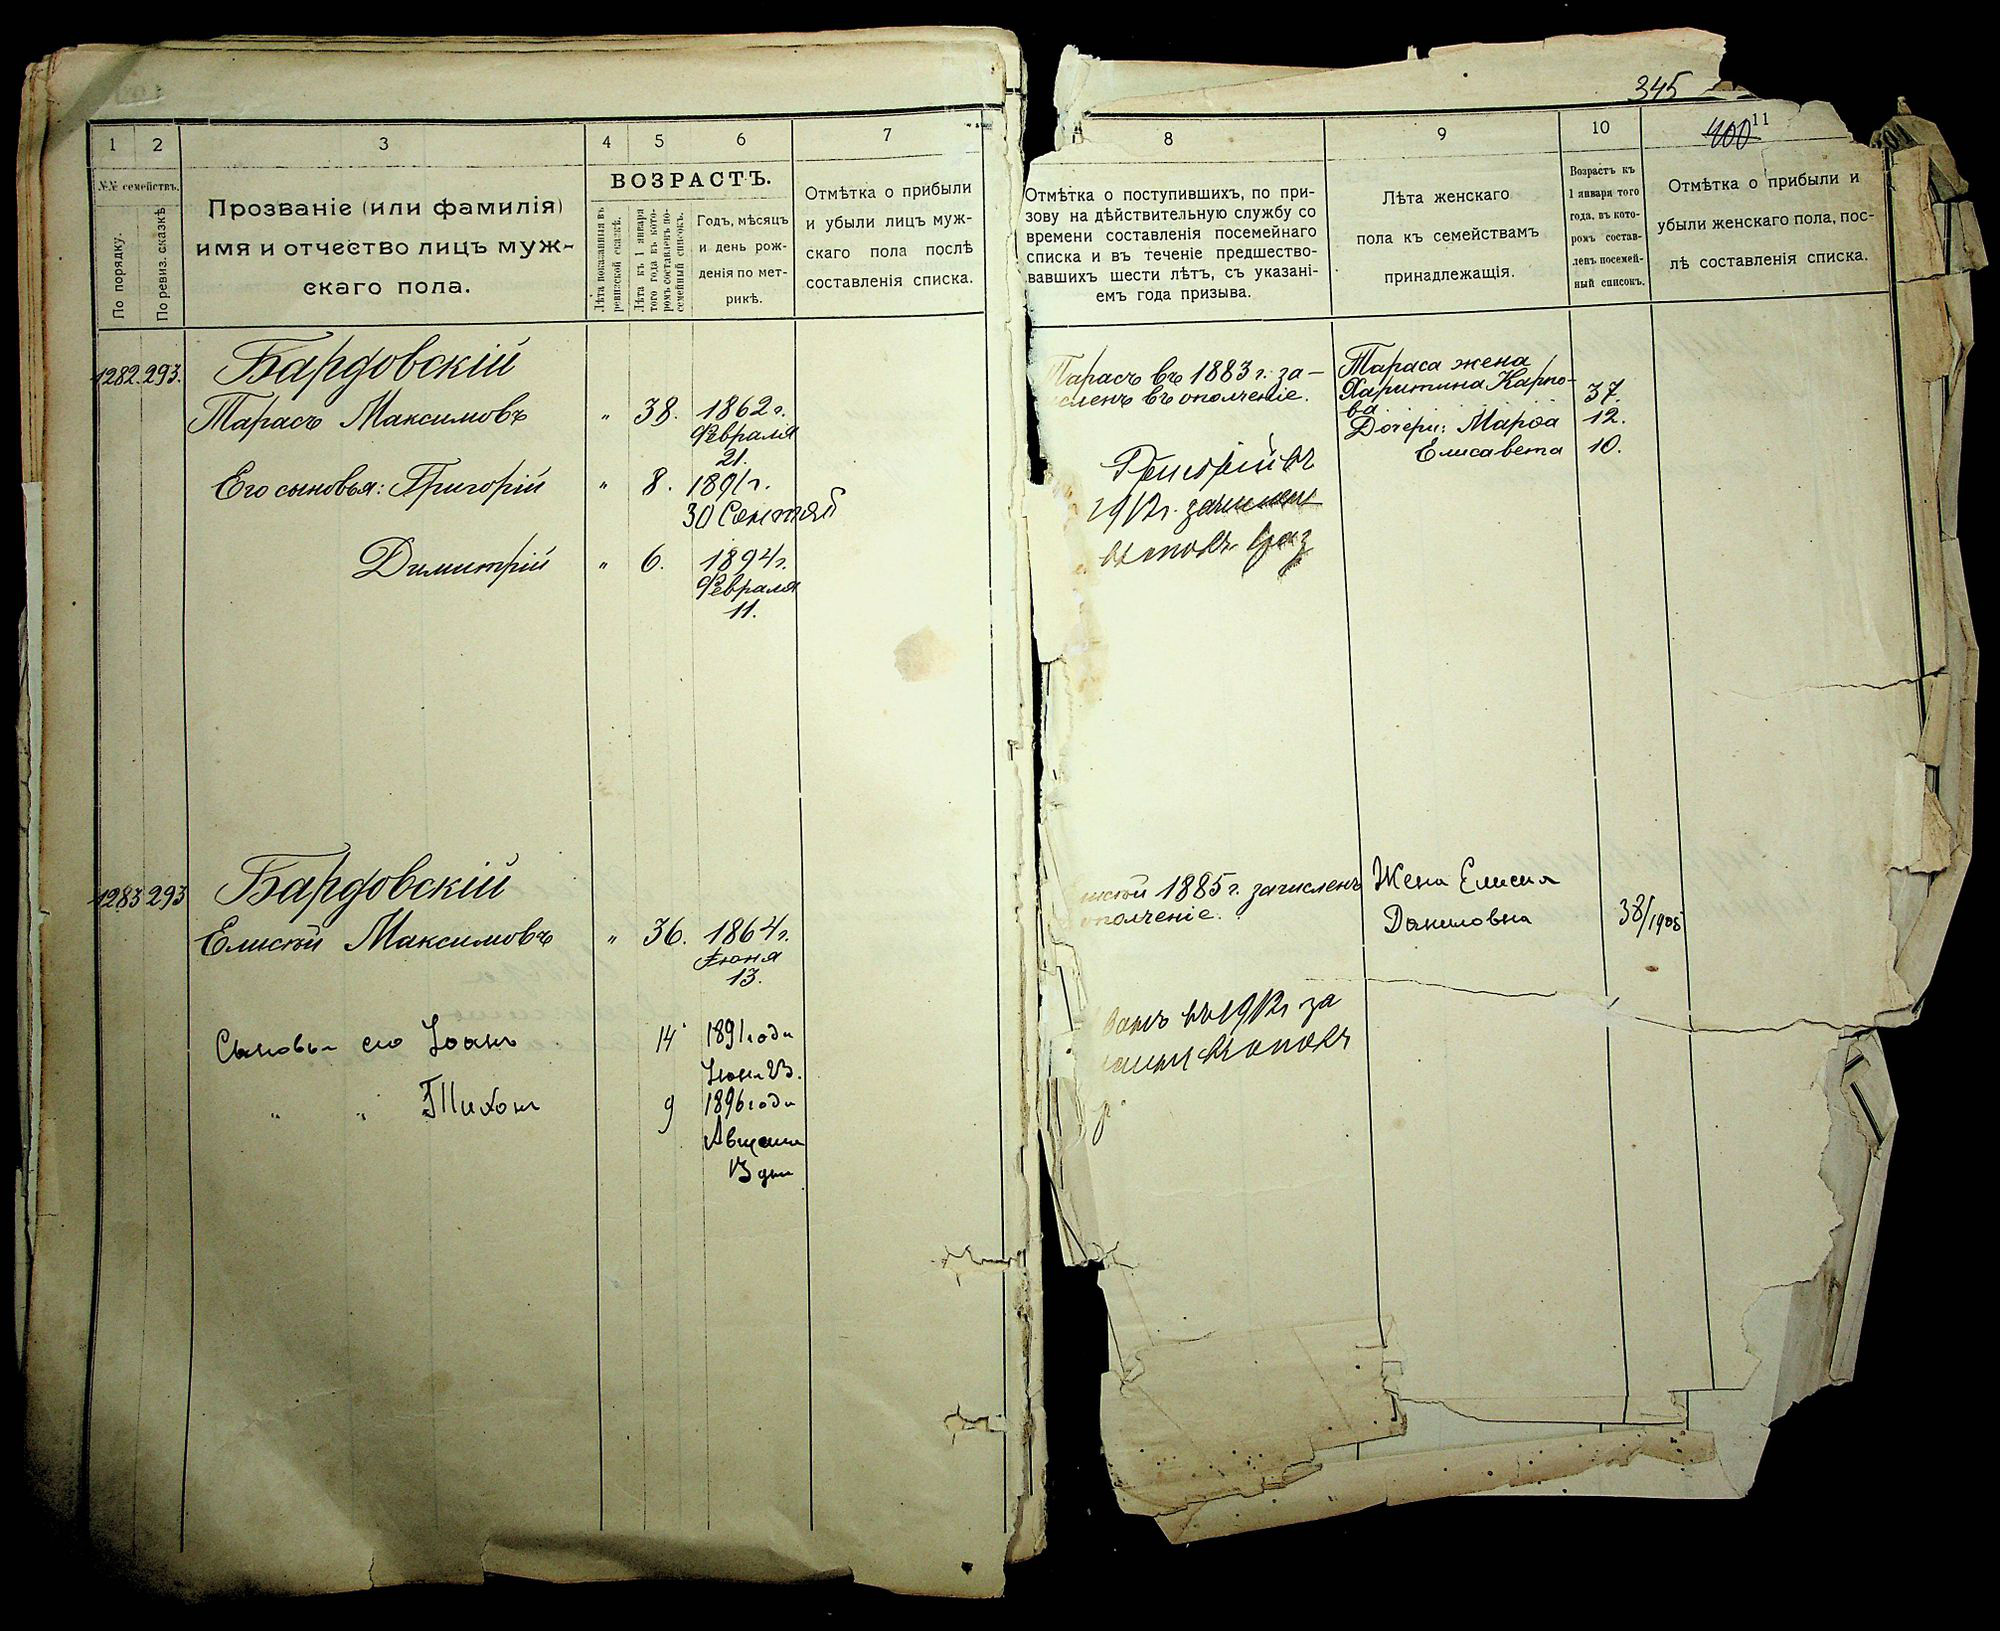 345
400
1
2
3
4
5
6
7
№№ семействъ.
По порядку.
По ревиз. сказкѣ
Прозваніе (или фамилія)
имя и отчество лицъ муж-
скаго пола.
ВОЗРАСТЪ.
Лѣта показанныя въ
ревизской сказкѣ.
Лѣта къ 1 января
того года въ кото-
ромъ составленъ по-
семейный списокъ.
Годъ, мѣсяцъ
и день рож-
денія по мет-
рикѣ.
Отмѣтка о прибыли
и убыли лицъ муж-
скаго пола послѣ
составленія списка.
8
9
10
11
Отмѣтка о поступившихъ, по при-
зову на дѣйствительную службу со
времени составленія посемейнаго
списка и въ теченіе предшество-
вавшихъ шести лѣтъ, съ указані-
емъ года призыва.
Лѣта женскаго
пола къ семействамъ
принадлежащія.
Возрастъ къ
1 января того
года, въ кото-
ромъ состав-
ленъ посемей-
ный списокъ.
Отмѣтка о прибыли и
убыли женскаго пола, пос-
лѣ составленія списка.
1282. 293. Бардовскій
Тарасъ Максимовъ " 38. 1862 г.
Февраля
21.
Его сыновья: Григорій " 8. 1891 г.
30
Димитрій " 6. 1894 г.
Февраля
11.
Тарасъ въ 1883 г. за-
численъ въ ополченіе.
Григорій въ
1912 г.
Тараса жена
Харитина Карпо-
ва 37.
Дочери: Марѳа 12.
Елисавета 10.
1283 293 Бардовскій
Елисѣй Максимовъ " 36. 1864 г.
Іюня
13.
Сыновья его Іоанъ 14 1891 года
" " Тихонъ 9 1896 года
Августа
1885 г. зачисленъ
ополченіе.
въ 1912 г за
Жена Елисея
Даниловна 38/1905